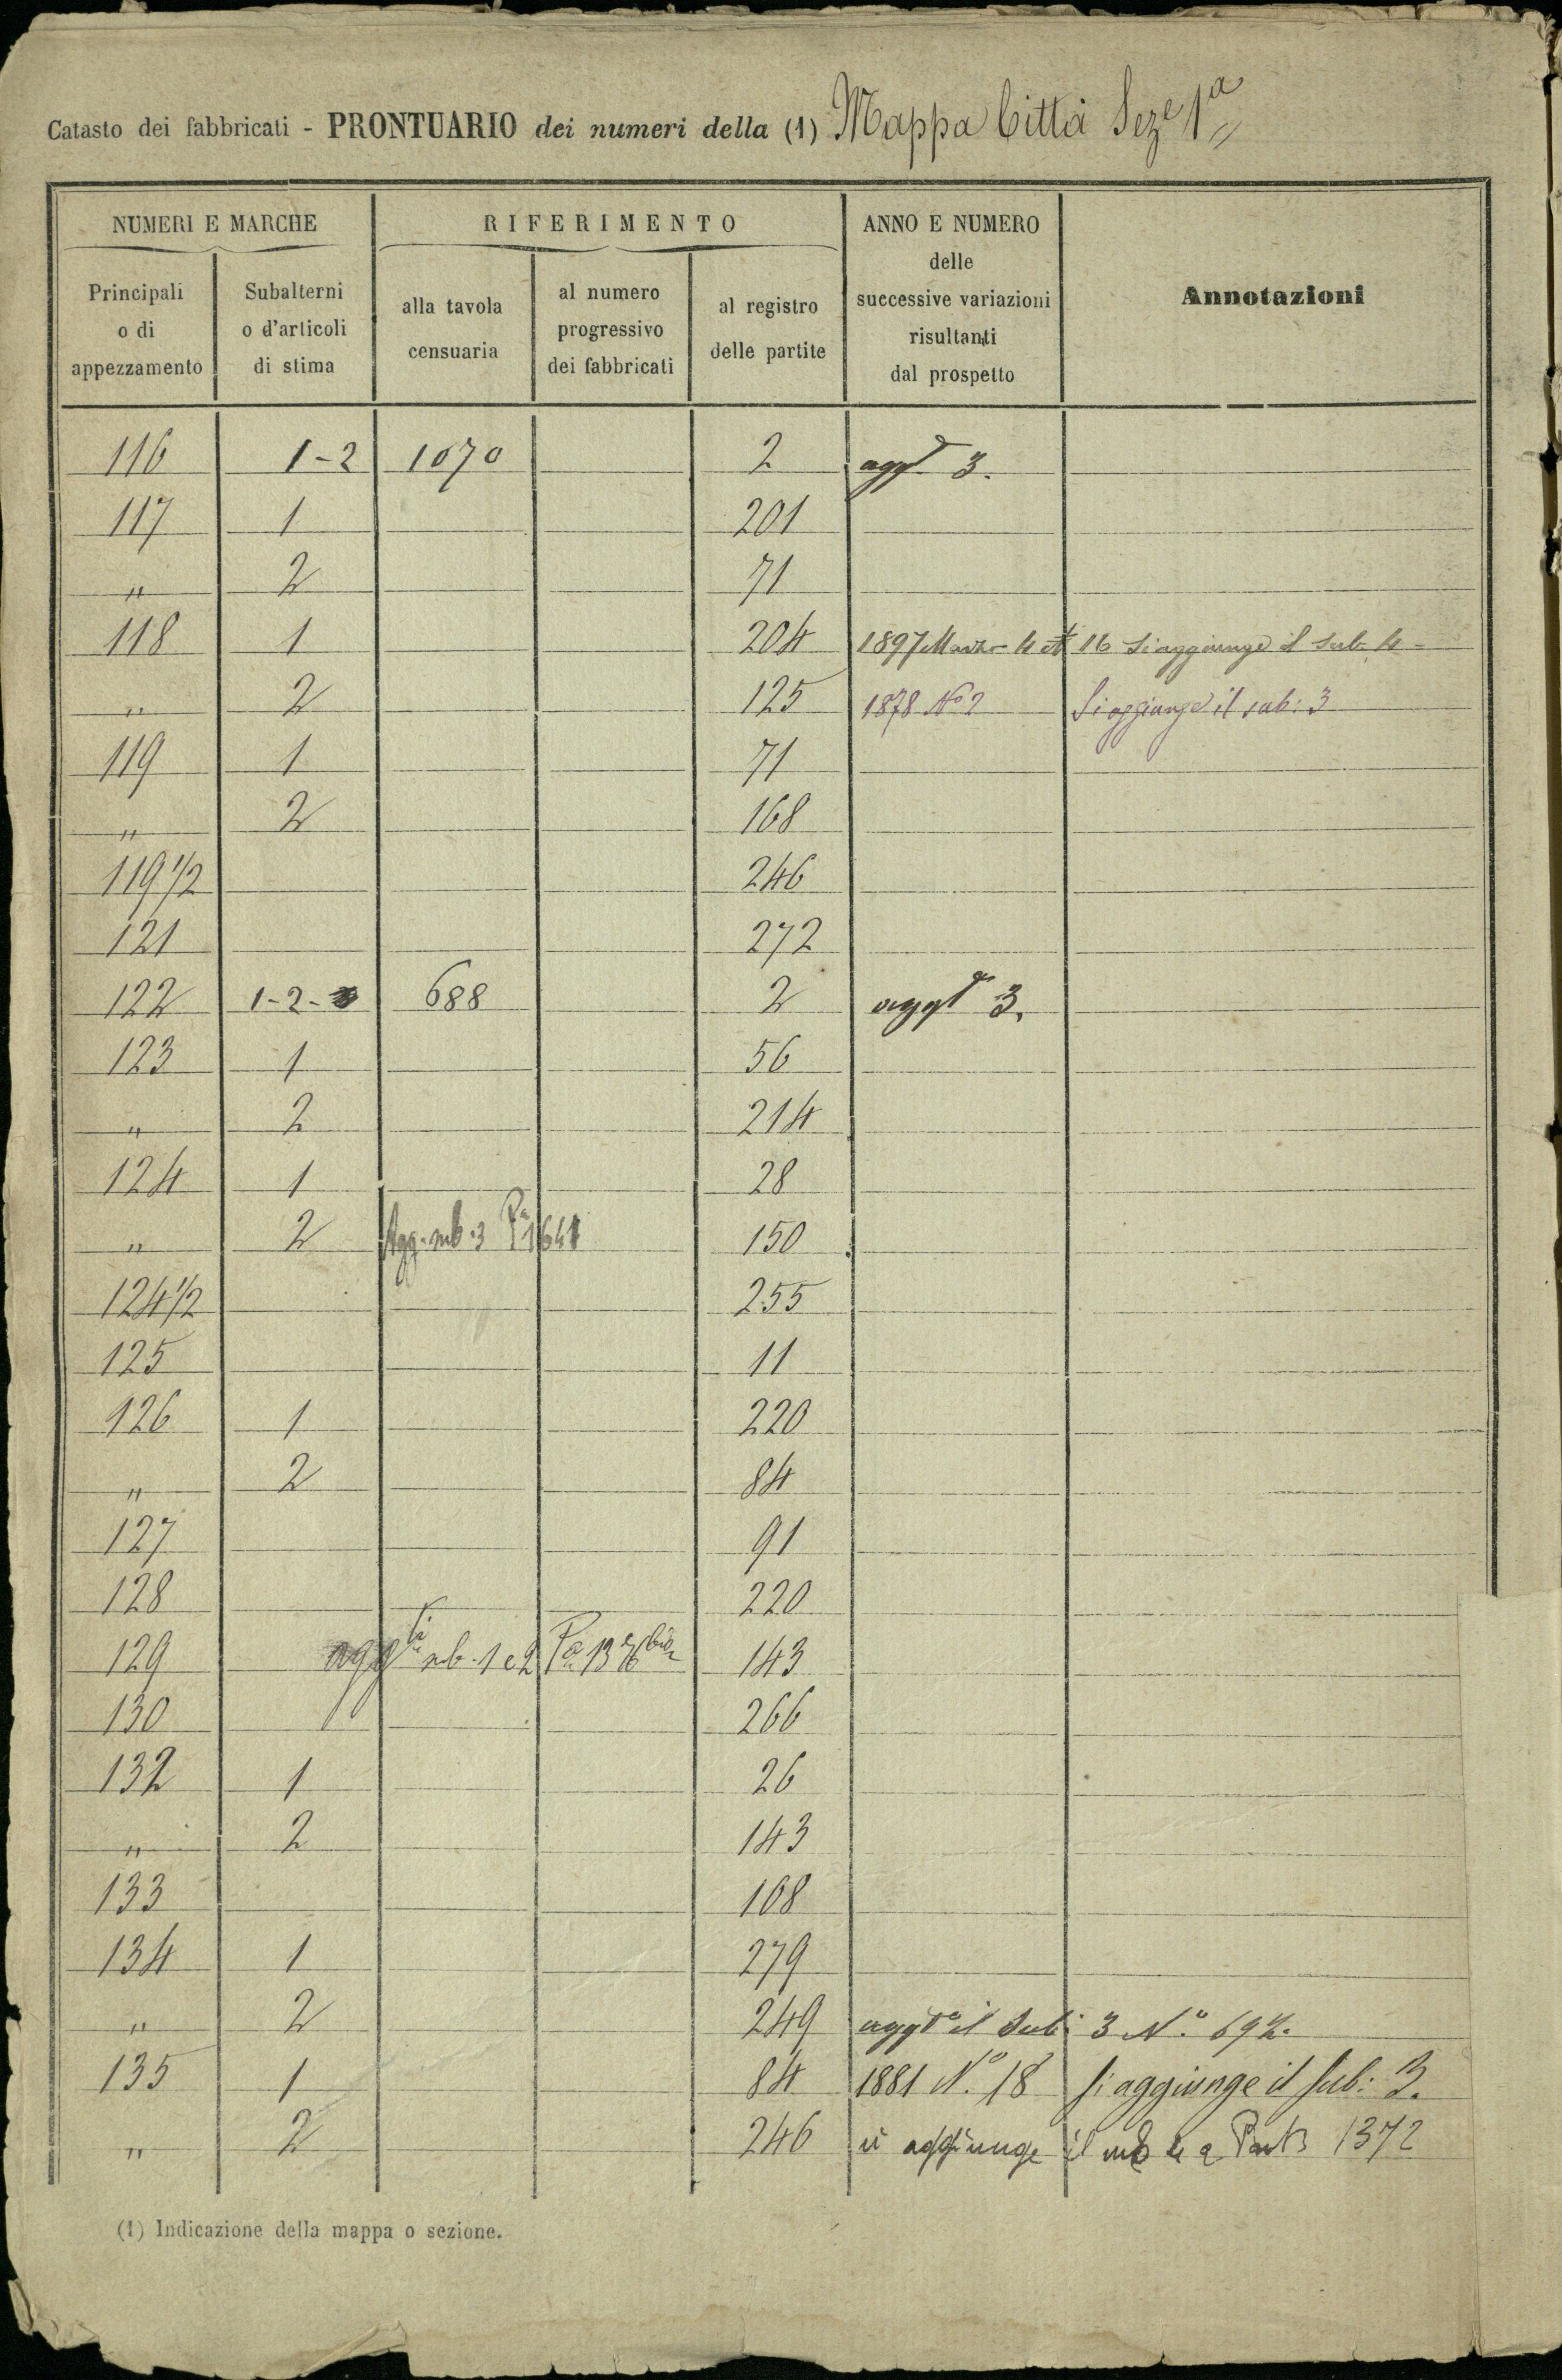 Catasto dei fabbricati - PRONTUARIO dei numeri della (1) Mappa Città Seze 1a
NUMERI E MARCHE RIFERIMENTO ANNO E NUMERO delle successive variazioni risultanti dal prospetto Annotazioni
Principali o di appezzamento Subalterni o d'articoli di stima alla tavola censuaria al numero progressivo dei fabbricati al registro delle partite
116 1-2 1070 2 aggto 3.
117 1 201
" 2 71
118 1 204 1897 Marzo 4 16 Si aggiunge il sub 4
" 2 125 1878 No 2 Si aggiunge il sub: 3
119 1 71
" 2 168
119 1/2 246
121 272
122 1-2- 688 2 aggto 3.
123 1 56
" 2 214
124 1 28
" 2 Agg. sub. 3 Pa 1641 150
124 1/2 255
125 11
126 1 220
" 2 84
127 91
128 220
129 aggti sub. 1 e 2 Pa 1376 bis 143
130 266
132 1 26
" 2 143
133 108
134 1 279
" 2 249 aggto il Sub: 3 No.
135 1 84 1881 No. 18 Si aggiunge il Sub: 3.
" 2 246 si aggiunge il sub 4 a 1372
(1) Indicazione della mappa o sezione.